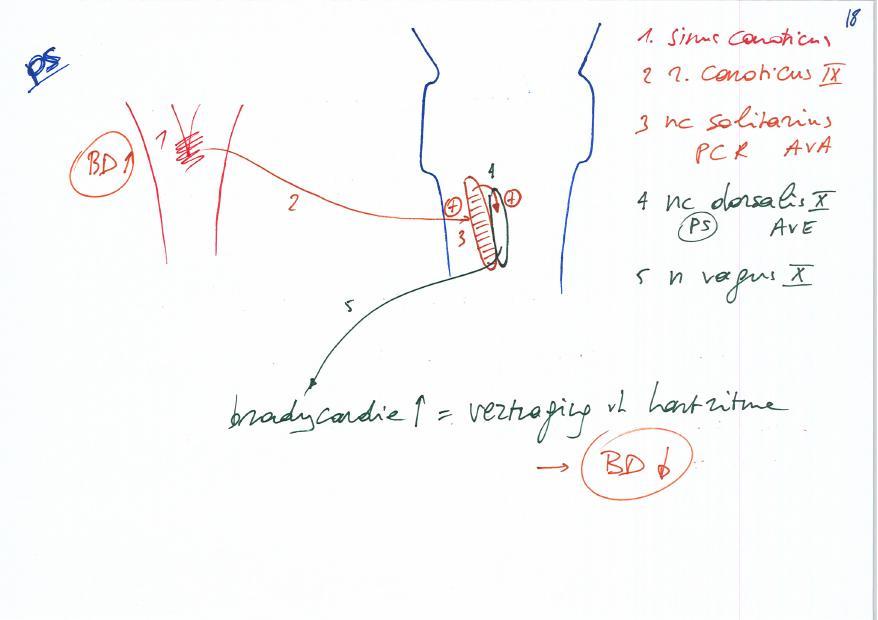 18
PS
1. Sinus Caroticus
2 n. Caroticus IX
3 nc solitarius
PCR AVA
4 nc dorsalis X
PS AvE
5 n vagus X
BD ↑
1
2
+
3
4
+
5
bradycardie ↑ = vertraging vh hartritme
→ BD ↓